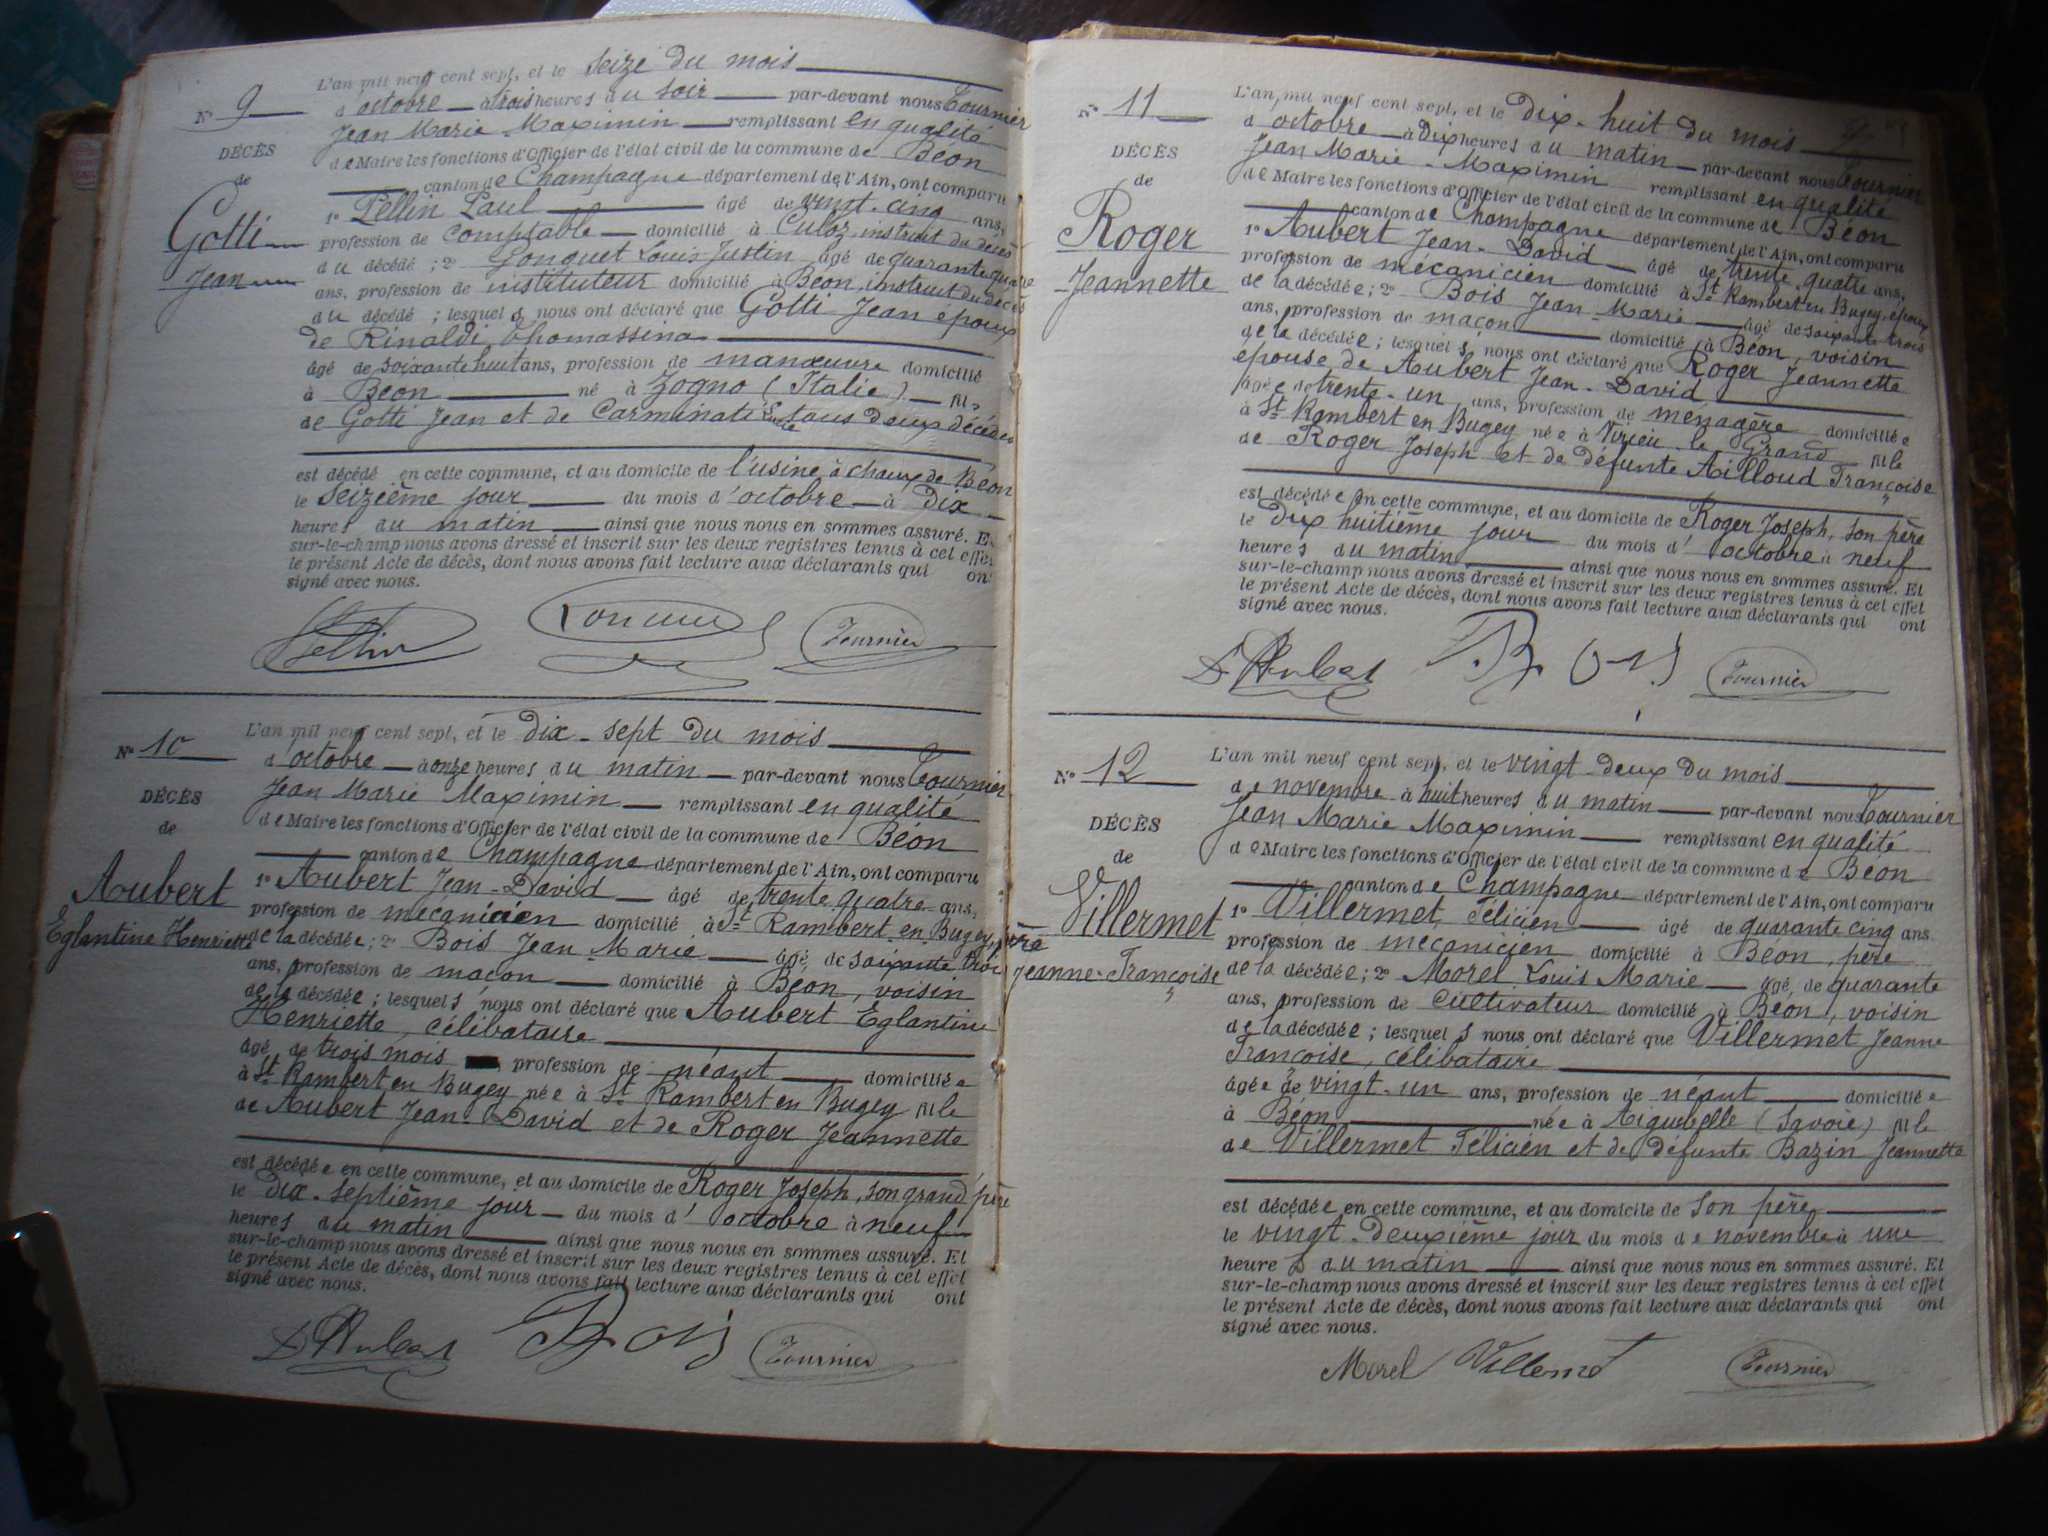 L'an mil neuf cent sept, et le seize du mois
N° 9
d'octobre à trois heures du soir par-devant nous Tournier
Jean Marie Maximin remplissant en qualité
DÉCÈS
de Maire les fonctions d'Officier de l'état civil de la commune de Béon
de
canton de Champagne département de l'Ain, ont comparu
1° Pellin Paul âgé de vingt-cinq ans,
Gotti
profession de comptable domicilié à Culoz, instruit du décès
Jean
du décédé ; 2° Gonguet Louis Justin, âgé de quarante quatre
ans, profession de instituteur domicilié à Béon, instruit du décès
du décédé ; lesquels nous ont déclaré que Gotti Jean époux
de Rinaldi Thomassina
âgé de soixante huit ans, profession de manœuvre domicilié
à Béon né à Zogno (Italie) fils
de Gotti Jean et de Carminati tous deux décédés
est décédé en cette commune, et au domicile de l'usine à chaux de Béon
le seizième jour du mois d'octobre à dix
heures du matin ainsi que nous nous en sommes assuré. Et
sur-le-champ nous avons dressé et inscrit sur les deux registres tenus à cet effet
le présent Acte de décès, dont nous avons fait lecture aux déclarants qui ont
signé avec nous.
Pellin Tournier
L'an mil neuf cent sept, et le dix-sept du mois
N° 10
d'octobre à onze heures du matin par-devant nous Tournier
Jean Marie Maximin remplissant en qualité
DÉCÈS
de Maire les fonctions d'Officier de l'état civil de la commune de Béon
de
canton de Champagne département de l'Ain, ont comparu
Aubert
1° Aubert Jean-David âgé de trente quatre ans,
Eglantine Henriette
profession de mécanicien domicilié à St Rambert en Bugey, père
de la décédée ; 2° Bois Jean-Marie âgé de soixante trois
ans, profession de maçon domicilié à Béon, voisin
de la décédée ; lesquels nous ont déclaré que Aubert Eglantine
Henriette, célibataire
âgé de trois mois, profession de néant domiciliée
à St Rambert en Bugey née à St Rambert en Bugey fille
de Aubert Jean-David et de Roger Jeannette
est décédée en cette commune, et au domicile de Roger Joseph, son grand père
le dix-septième jour du mois d'octobre à neuf
heures du matin ainsi que nous nous en sommes assuré. Et
sur-le-champ nous avons dressé et inscrit sur les deux registres tenus à cet effet
le présent Acte de décès, dont nous avons fait lecture aux déclarants qui ont
signé avec nous.
D Aubert Bois Tournier
L'an mil neuf cent sept, et le dix-huit du mois
N° 11
d'octobre à dix heures du matin par-devant nous Tournier
Jean Marie-Maximin remplissant en qualité
DÉCÈS
de Maire les fonctions d'Officier de l'état civil de la commune de Béon
de
canton de Champagne département de l'Ain, ont comparu
Roger
1° Aubert Jean-David âgé de trente quatre ans,
Jeannette
profession de mécanicien domicilié à St Rambert en Bugey, époux
de la décédée ; 2° Bois Jean-Marie âgé de soixante trois
ans, profession de maçon domicilié à Béon, voisin
de la décédée ; lesquels nous ont déclaré que Roger Jeannette
épouse de Aubert Jean-David
âgée de trente-un ans, profession de ménagère domiciliée
à St Rambert en Bugey née à Virieu-le-Grand fille
de Roger Joseph et de défunte Ailloud Françoise
est décédée en cette commune, et au domicile de Roger Joseph, son père
le dix huitième jour du mois d'octobre à neuf
heures du matin ainsi que nous nous en sommes assuré. Et
sur-le-champ nous avons dressé et inscrit sur les deux registres tenus à cet effet
le présent Acte de décès, dont nous avons fait lecture aux déclarants qui ont
signé avec nous.
D Aubert Bois Tournier
L'an mil neuf cent sept, et le vingt-deux du mois
N° 12
de novembre à huit heures du matin par-devant nous Tournier
Jean Marie Maximin remplissant en qualité
DÉCÈS
de Maire les fonctions d'Officier de l'état civil de la commune de Béon
de
canton de Champagne département de l'Ain, ont comparu
Villermet
1° Villermet Félicien âgé de quarante cinq ans
Jeanne-Françoise
profession de mécanicien domicilié à Béon, père
de la décédée ; 2° Morel Louis Marie âgé de quarante
ans, profession de cultivateur domicilié à Béon, voisin
de la décédée ; lesquels nous ont déclaré que Villermet Jeanne
Françoise, célibataire
âgée de vingt-un ans, profession de néant domiciliée
à Béon née à Aiguebelle (Savoie) fille
de Villermet Félicien et de défunte Bazin Jeannette
est décédée en cette commune, et au domicile de son père
le vingt-deuxième jour du mois de novembre à une
heure du matin ainsi que nous nous en sommes assuré. Et
sur-le-champ nous avons dressé et inscrit sur les deux registres tenus à cet effet
le présent Acte de décès, dont nous avons fait lecture aux déclarants qui ont
signé avec nous.
Morel Villermet Tournier